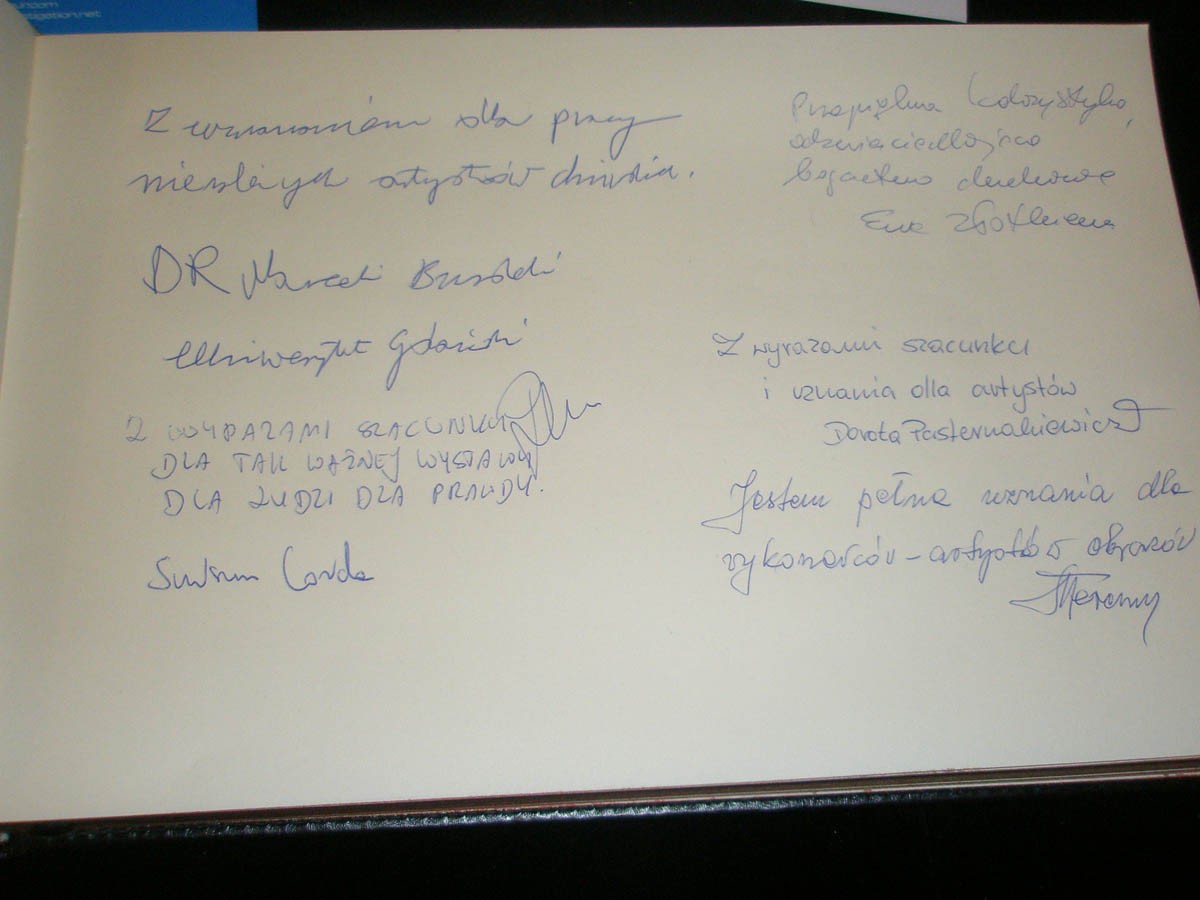 stigation.net
Z uznaniem dla pracy
artystów
DR
Uniwersytet Gdański
Z WYRAZAMI SZACUNKU
DLA TAK WAŻNEJ WYSTAWY
DLA LUDZI DLA PRAWDY.
Sursum Corda
Przepiękna kolorystyka,
odzwierciedlająca
bogactwo duchowe
Ewa
Z wyrazami szacunku
i uznania dla artystów
Dorota Pasternakiewicz
Jestem pełna uznania dla
wykonawców – artystów obrazów